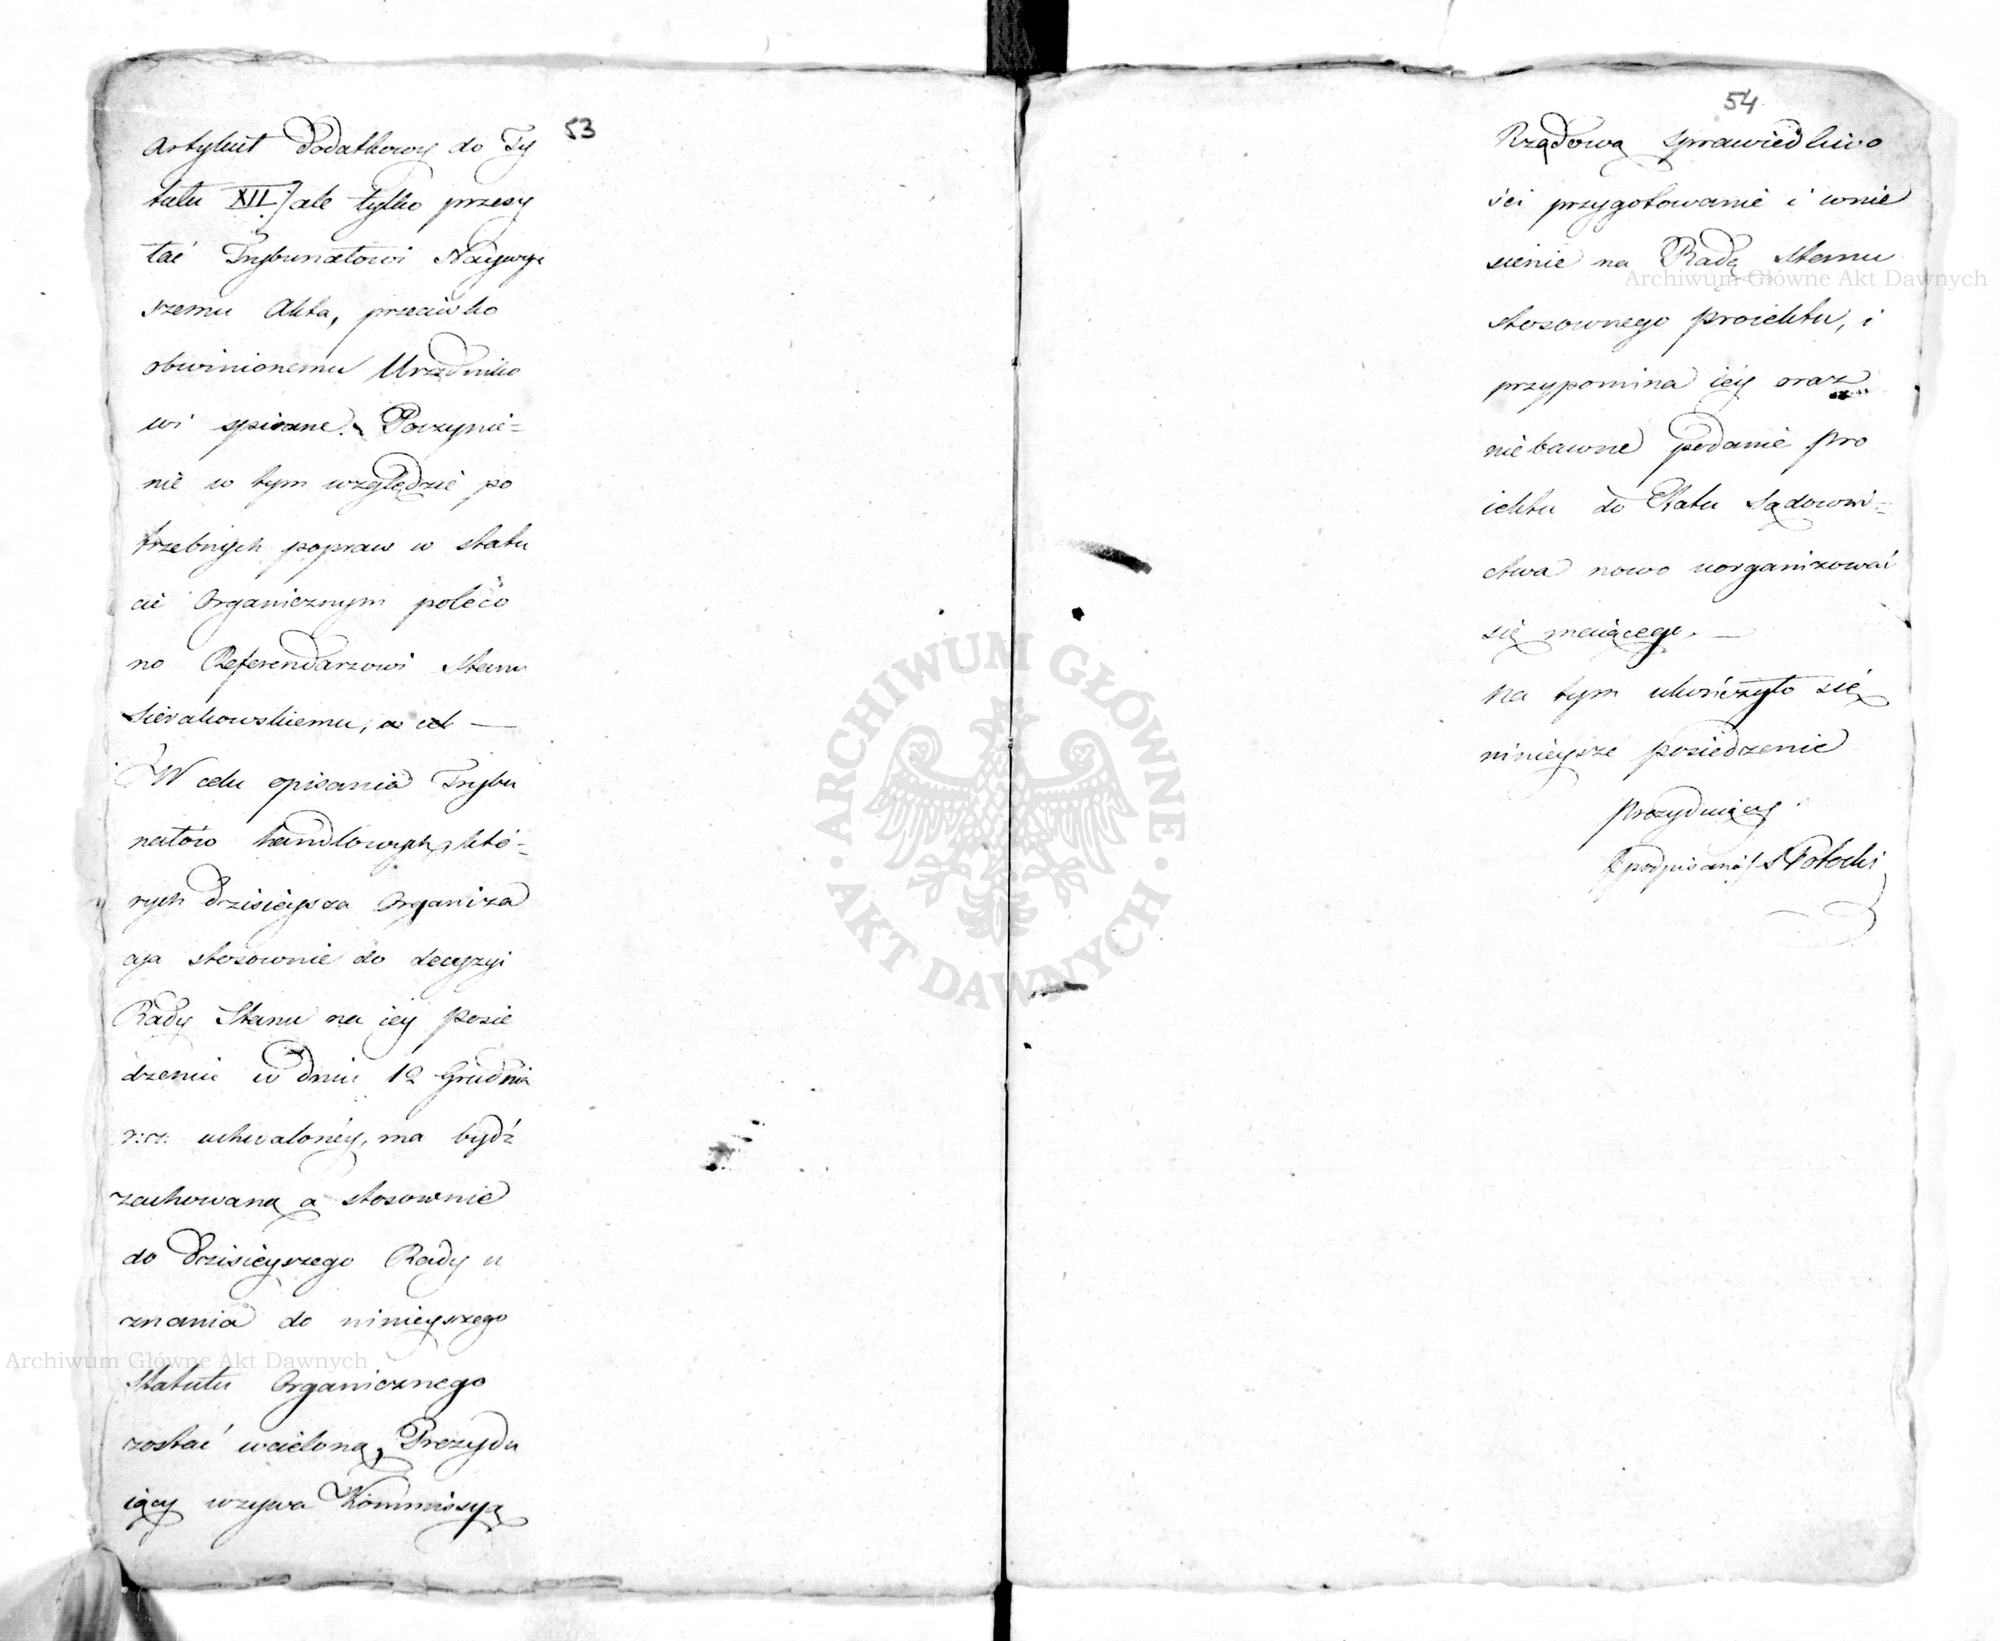 53
Artykuł dodatkowy do Ty
tułu XII./ ale tylko przesy
łać Trybunałowi Naywyż
szemu Akta, przeciwko
obwinionemu Urzędniko
wi spisane. Poczynie=
nie w tym względzie po
trzebnych popraw w statu
cie Organicznym poleco
no Referendarzowi Stanu
Sierakowskiemu, a cel —
W celu opisania Trybu
nałów handlowych, któ=
rych dzisieysza Organiza
cya stosownie do decyzyi
Rady Stanu na iey posie
dzeniu w dniu 12 Grudnia
r: z: uchwaloney, ma bydź
zachowaną a stosownie
do dzisieyszego Rady u
znania do ninieyszego
Statutu Organicznego
zostać wcieloną, Prezydu
iący wzywa Kommissyą
54
Rządową Sprawiedliwo
ści przygotowanie i wnie
sienie na Radę Stanu
stosownego proiektu, i
przypomina iey oraz
niebawne podanie pro
iektu do Etatu Sądowni=
ctwa nowo uorganizować
się maiącego. —
Na tym ukończyło się
ninieysze posiedzenie
Prezyduiący
/podpisano/ S Potocki
Archiwum Główne Akt Dawnych
Archiwum Główne Akt Dawnych
ARCHIWUM GŁÓWNE
AKT DAWNYCH